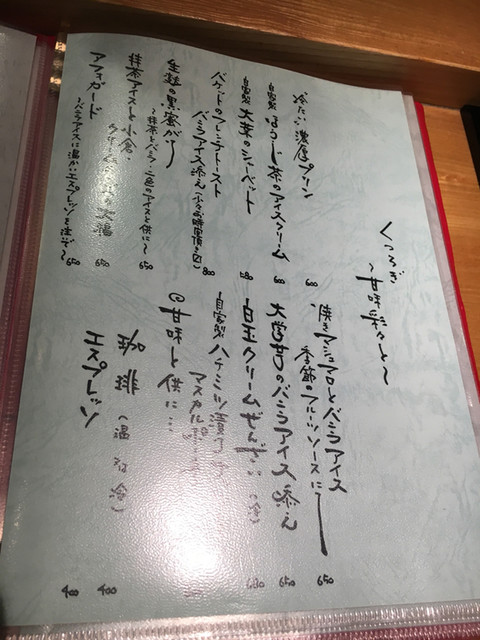 くつろぎ
〜甘味彩々と〜
冷たい濃厚プリン 600
自家製 ほうじ茶のアイスクリーム 600
自家製 大葉のシャーベット 580
バケットのフレンチトースト
バニラアイス添え(少々お時間頂きます) 800
生麩の黒蜜がけ
〜抹茶とバニラ・二色のアイスと供に〜 650
抹茶アイスと小倉、
の大福 650
アフォガード
〜バニラアイスに温かいエスプレッソを注ぐ〜 650
焼きマシュマロとバニラアイス
季節のフルーツソースにて 650
大学芋のバニラアイス添え 650
白玉クリームぜんざい(冷) 680
自家製 ハチミツ
マスカルポ
◎甘味と供に…
珈琲(温 又は 冷) 400
エスプレッソ 400